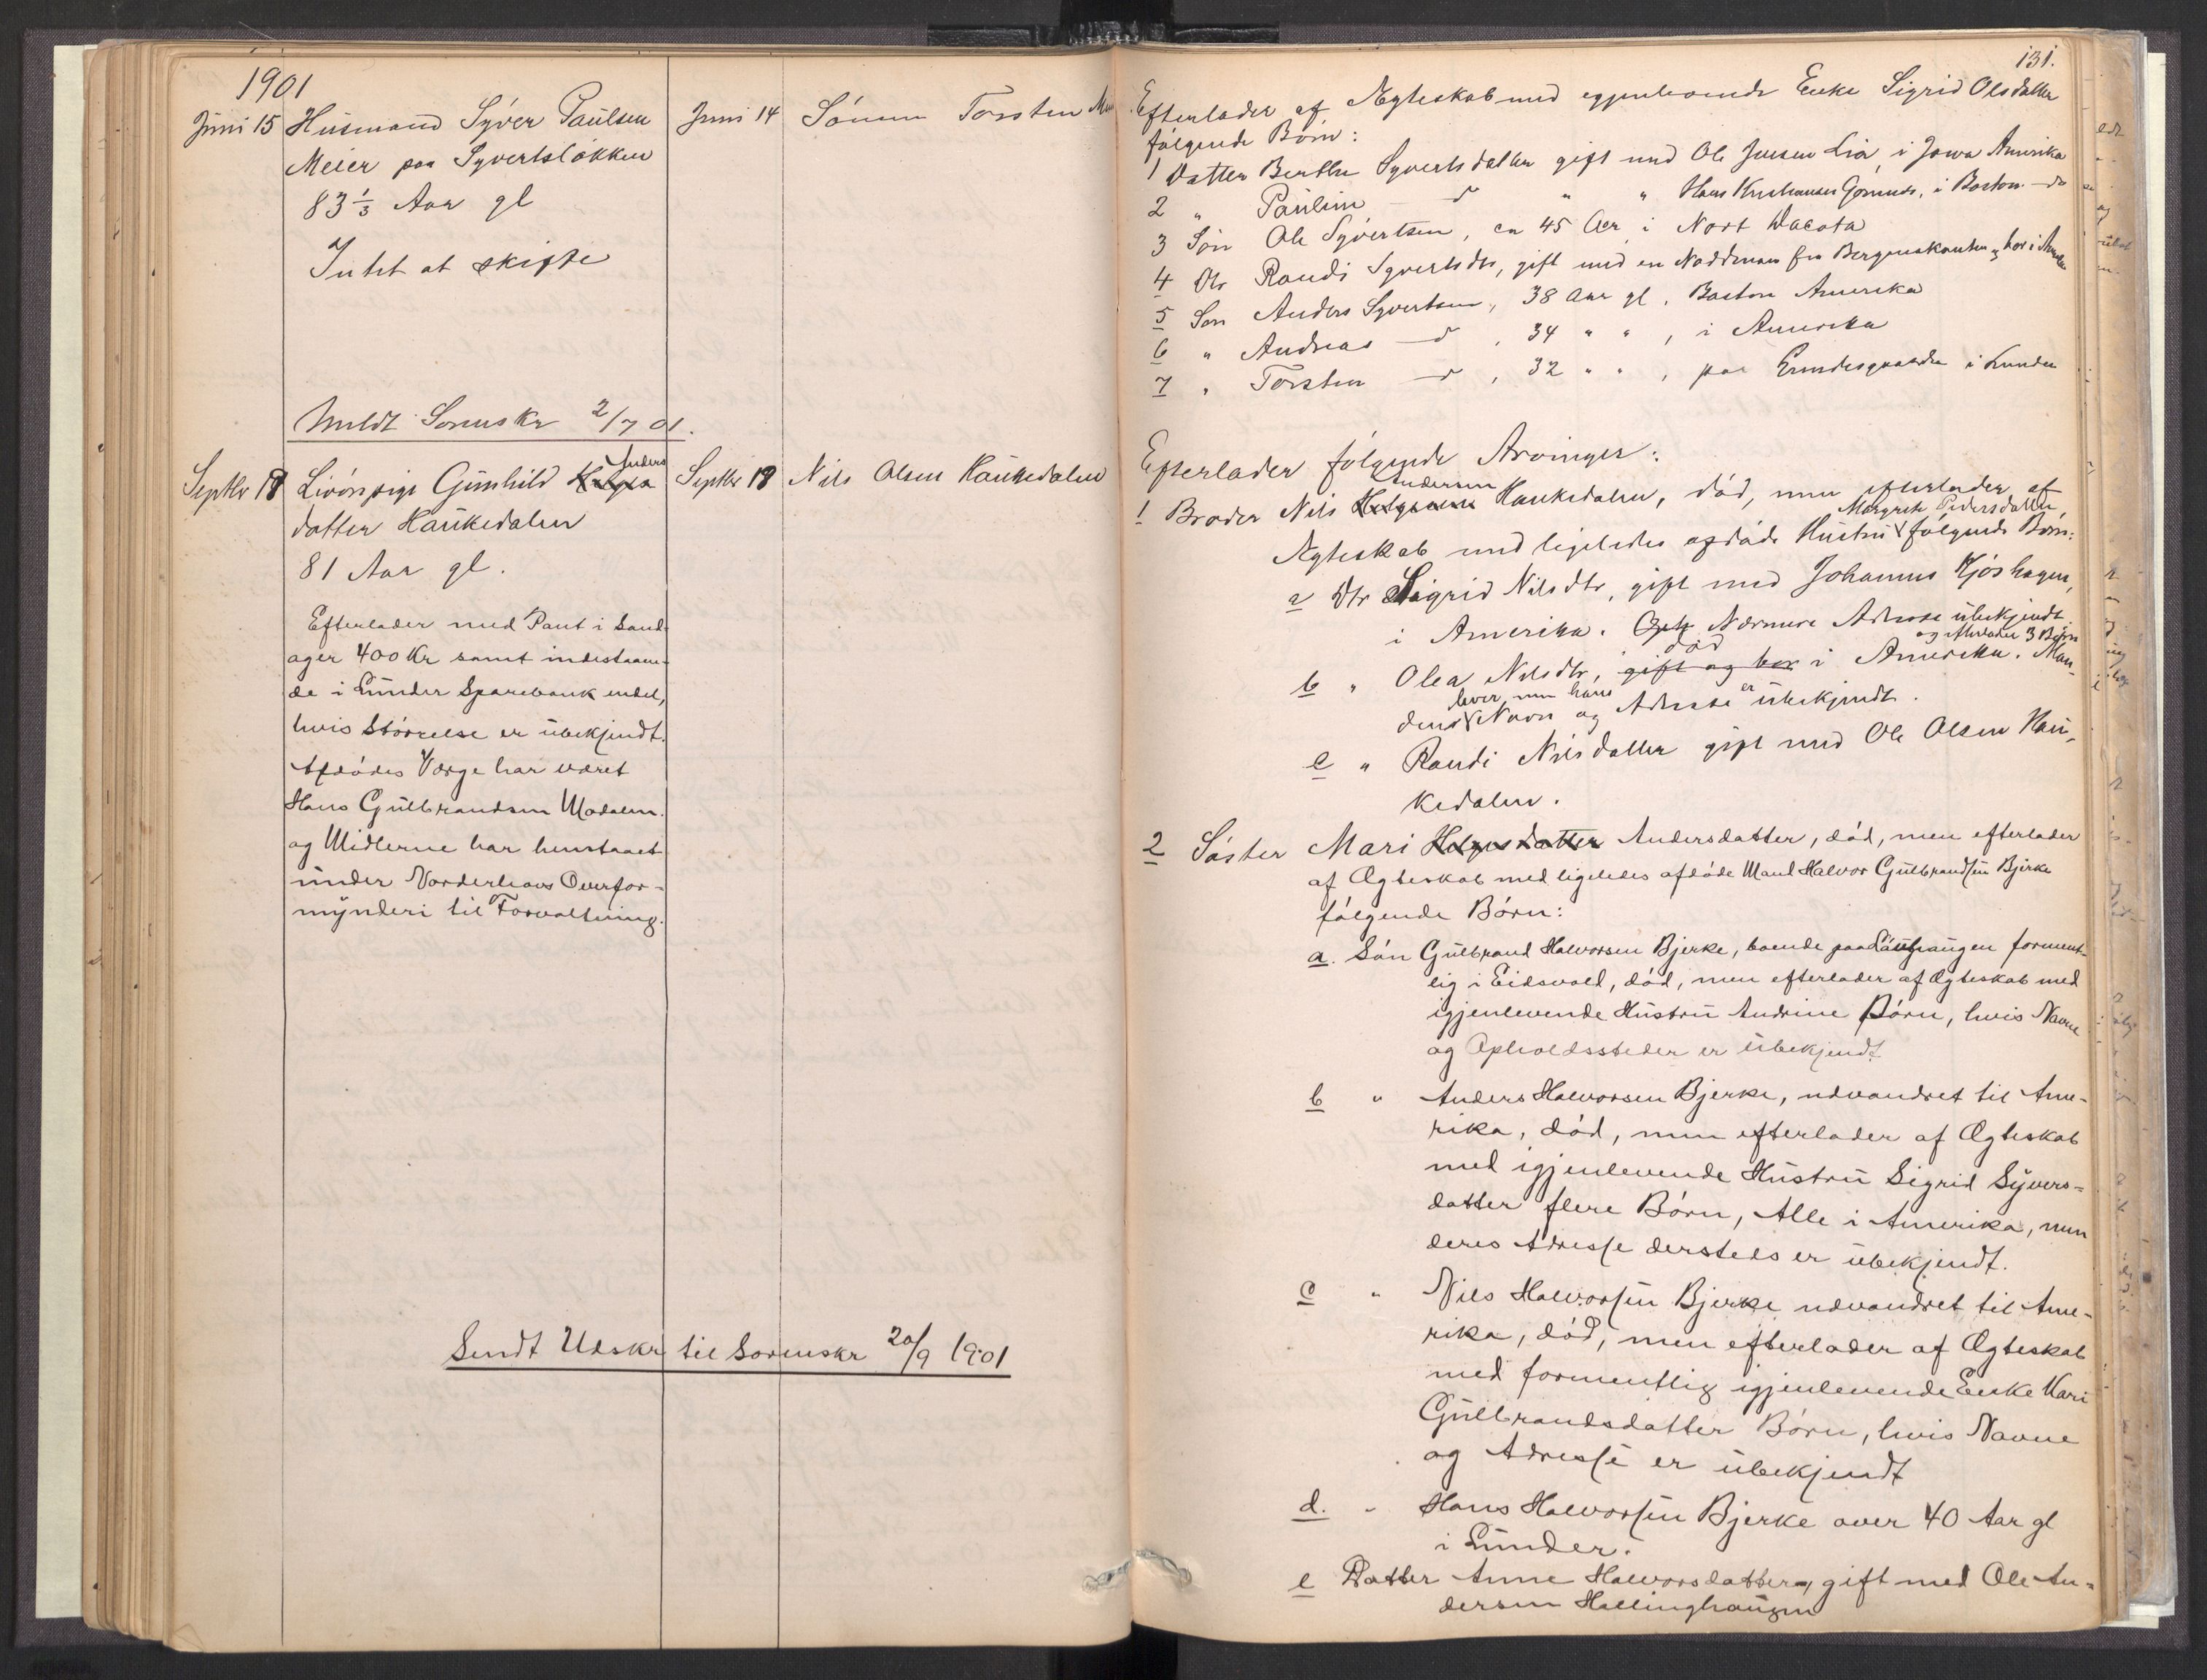 1901
Juni 15 Husmand Syver Paulsen Juni 14 Sönnen Torsten
Meier paa Syvertsløkken
83 1/3 Aar gl
Intet at skifte
Meldt Sorenskr 2/7 01.
Anders
Septbr 18 Livörspige Gunhild Helges Septbr 18 Nils Olsen Haukedalen
datter Haukedalen
81 Aar gl.
Efterlader med Pant i Sand-
ager 400 Kr samt indestaaen-
de i Lunder Sparebank endel,
hvis Större​lse er ubekjendt.
Afdödes Værge har været
Hans Gulbrandsen Modalen.
og Midlerne har henstaaet
under Norderhovs Overfor-
mynderi til Forvaltning.
Sendt Udskr til Sorenskr 20/9 1901
131.
Efterlader af Ægteskab med igjenlevende Enke Sigrid Olsdatter
fölgende Börn:
1 Datter Berthe Syvertsdatter gift med Ole Jensen Lia, i Jowa Amerika
2 " Pauline — d " " Hans, i Boston - do
3 Sön Ole Syvertsen, ca 45 Aar i Nort Dacota
4 Dtr Randi Syvertsdtr, gift med en Nordman fra Bergenskanten, bor i
5 Sön Anders Syvertsen, 38 Aar gl, Boston Amerika
6 " Andreas — d , 34 " " , i Amerika
7 " Torsten — d , 32 " " , paa i Lunder
Efterlader fölgende Arvinger:
Andersen
1 Broder Nils Helgesen Haukedalen, död, men efterlader af
Margrete Pedersdatter,
Ægteskab med ligeledes afdöde Hustru fölgende Börn:
a Dtr Sigrid Nilsdtr, gift med Johannes Kjöshagen,
i Amerika. Nærmere Adresse ubekjendt.
död og efterlader 3 Börn
b " Olea Nilsdtr, gift og bor i Amerika. Man-
lever, men hans er
dens Navn og Adresse ubekjendt.
c " Randi Nilsdatter gift med Ole Olsen Hau-
kedalen.
2 Söster Mari Helgesdatter Andersdatter, död, men efterlader
af Ægteskab med ligeledes afdöde Mand Halvor Gulbrandsen Bjerke
fölgende Börn:
a. Sön Gulbrand Halvorsen Bjerke, boende paa forment-
lig i Eidsvold, död, men efterlader af Ægteskab med
igjenlevende Hustru Andrine Börn, hvis Navne
og Opholdssteder er ubekjendt
b " Anders Halvorsen Bjerke, udvandret til Ame-
rika, död, men efterlader af Ægteskab
med igjenlevende Hustru Sigrid Syvers-
datter flere Börn, Alle i Amerika, men
deres Adresse dersteds er ubekjendt.
c " Nils Halvorsen Bjerke udvandret til Ame-
rika, död, men efterlader af Ægteskab
med formentlig igjenlevende Enke Kari
Gulbrandsdatter Börn, hvis Navne
og Adresse er ubekjendt
d. " Hans Halvorsen Bjerke over 40 Aar gl
i Lunder.
e Datter Anne Halvorsdatter, gift med Ole An-
dersen Hallinghaugen